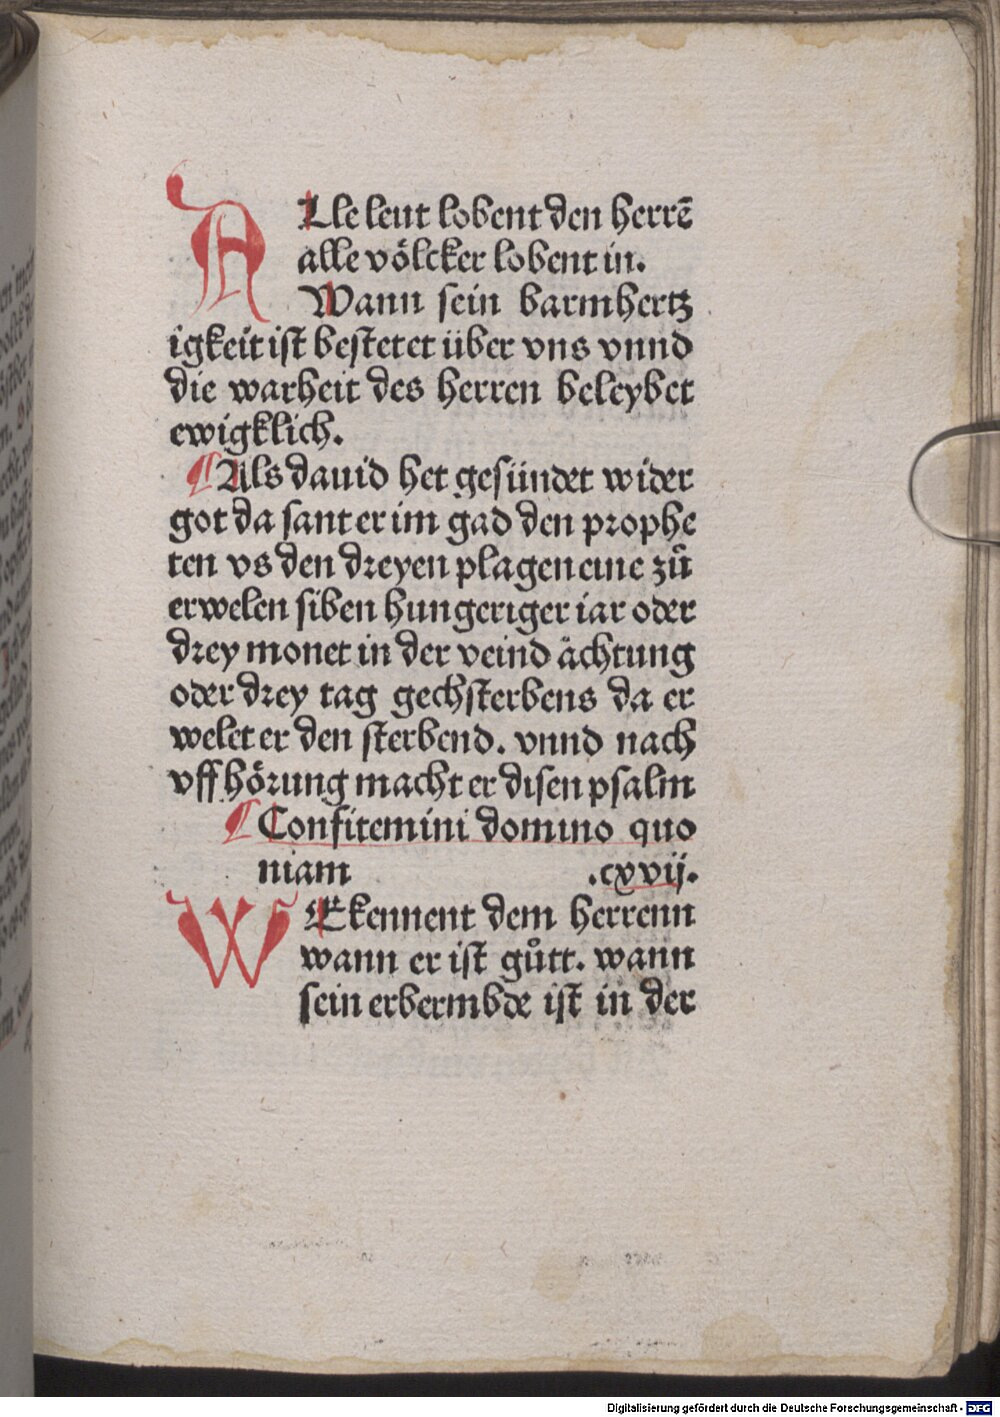 ALle leut lobent den herrē
alle völcker lobent in.
Wann sein barmhertz
igkeit ist bestetet über vns vnnd
die warheit des herren beleybet
ewigklich.
¶Als dauid het gesündet wider
got da sant er im gad den prophe
ten vs den dreyen plagen eine zů
erwelen siben hungeriger iar oder
drey monet in der veind ächtung
oder drey tag gechsterbens da er
welet er den sterbend. vnnd nach
vffhörung macht er disen psalm
¶Confitemini domino quo
niam .cxvij.
WEkennent dem herrenn
wann er ist gůtt. wann
sein erbermbde ist in der
Digitalisierung gefördert durch die Deutsche Forschungsgemeinschaft - DFG